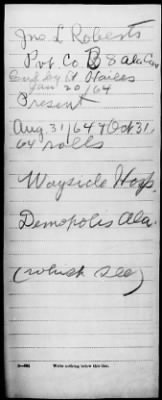 Jno L Roberts
Pvt. Co B 8 Ala Cav
Enl by A Hailes
Jan 20/64
Present
Aug. 31/64 & Oct 31,
64 rolls
Wayside Hosp.
Demopolis Ala.
(which see)
Write nothing below this line.